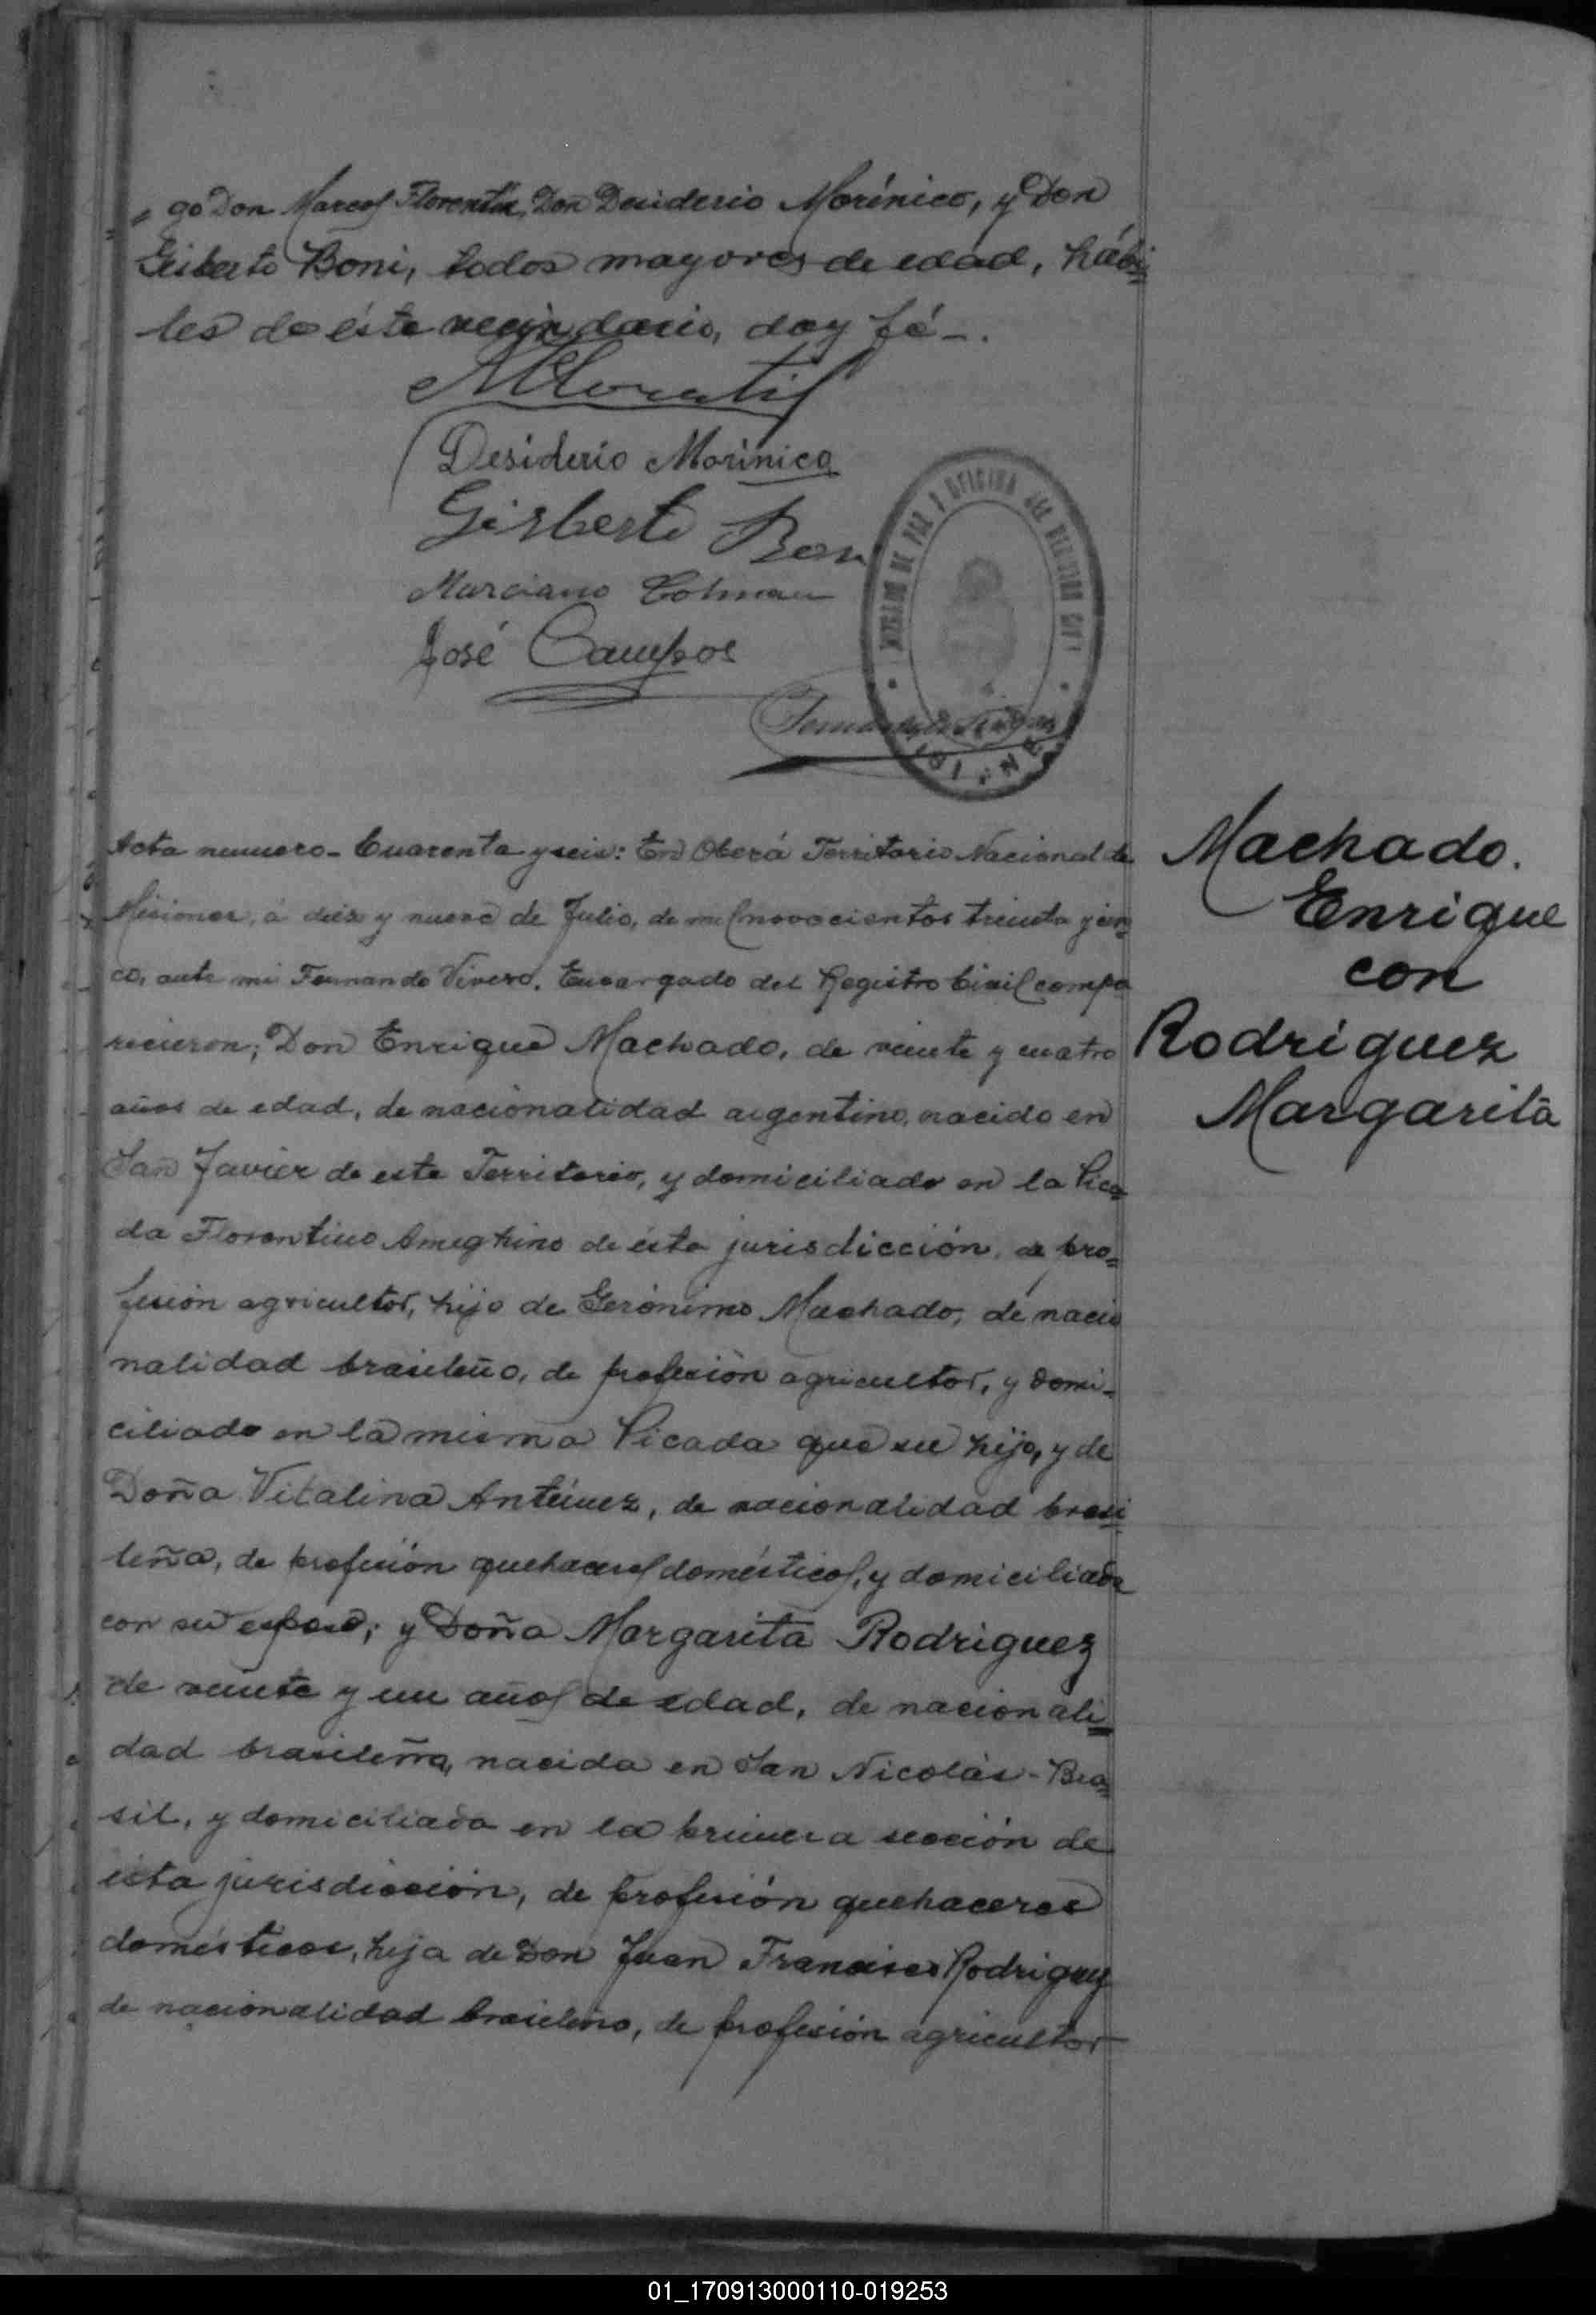 go Don Marcos Florentin, Don Desiderio Morínico, y Don
Gisberto Boni, todos mayores de edad, hábi=
les de éste vecindario, doy fé -.
Desiderio Morinico
Gisberto Boni
Marciano Colman
José Campos
JUZGADO DE PAZ Y OFICINA DEL REGISTRO CIVIL
Acta numero - Cuarenta y seis: En Oberá Territorio Nacional de
Misiones, á diéz y nueve de Julio, de mil novecientos treinta y cin=
co, ante mi Fernando Vivero, Encargado del Registro Civil compa
recieron; Don Enrique Machado, de veinte y cuatro
años de edad, de nacionalidad argentino, nacido en
San Javier de este Territorio, y domiciliado en la Pica=
da Florentino Ameghino de ésta jurisdicción, de pro=
fesión agricultor, hijo de Gerónimo Machado, de nacio
nalidad brasileño, de profesión agricultor, y domi-
ciliado en la misma Picada que su hijo, y de
Doña Vitalina Antúnez, de nacionalidad brasi
leña, de profesión quehaceres domésticos, y domiciliada
con su esposo; y Doña Margarita Rodriguez
de veinte y un años de edad, de nacionali=
dad brasileña, nacida en San Nicolás - Bra=
sil, y domiciliada en la primera sección de
ésta jurisdicción, de profesión quehaceres
domésticos, hija de Don Juan Francisco Rodriguez
de nacionalidad brasileño, de profesión agricultor
Machado.
Enrique
con
Rodriguez
Margarita
01_170913000110-019253